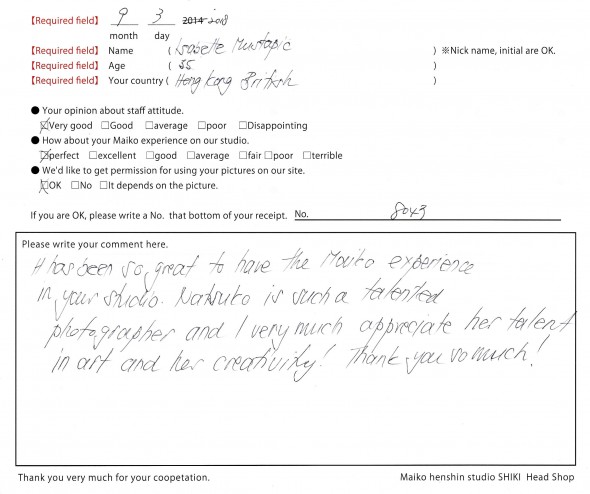 【Required field】 9 3 2014 2018
month day
【Required field】 Name ( Isabelle Mustapic ) ※Nick name, initial are OK.
【Required field】 Age ( 55 )
【Required field】 Your country ( Hong Kong British )
● Your opinion about staff attitude.
☒Very good □Good □average □poor □Disappointing
● How about your Maiko experience on our studio.
☒perfect □excellent □good □average □fair □poor □terrible
● We'd like to get permission for using your pictures on our site.
☒OK □No □It depends on the picture.
If you are OK, please write a No. that bottom of your receipt. No. 8043
Please write your comment here.
It has been so great to have the Maiko experience
in your studio. Natsuko is such a talented
photographer and I very much appreciate her talent
in art and her creativity! Thank you so much!
Thank you very much for your coopetation. Maiko henshin studio SHIKI Head Shop